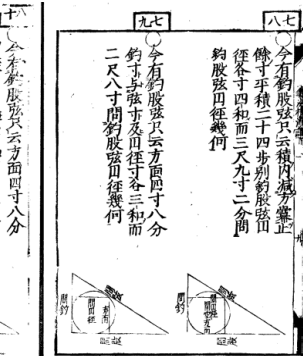 七八
今有鈎股弦只云積内減方羃止
餘寸平積二十四步別鈎股弦円
徑各寸四和而三尺九寸二分問
鈎股弦円徑幾何
問鈎
問弦
問股
七九
今有鈎股弦只云方面四寸八分
鈎寸与弦寸及円徑寸各三和而
二尺八寸問鈎股弦円徑幾何
問鈎
問弦
方面
問円徑
問股
八十
今有鈎股弦只云方面四寸八分